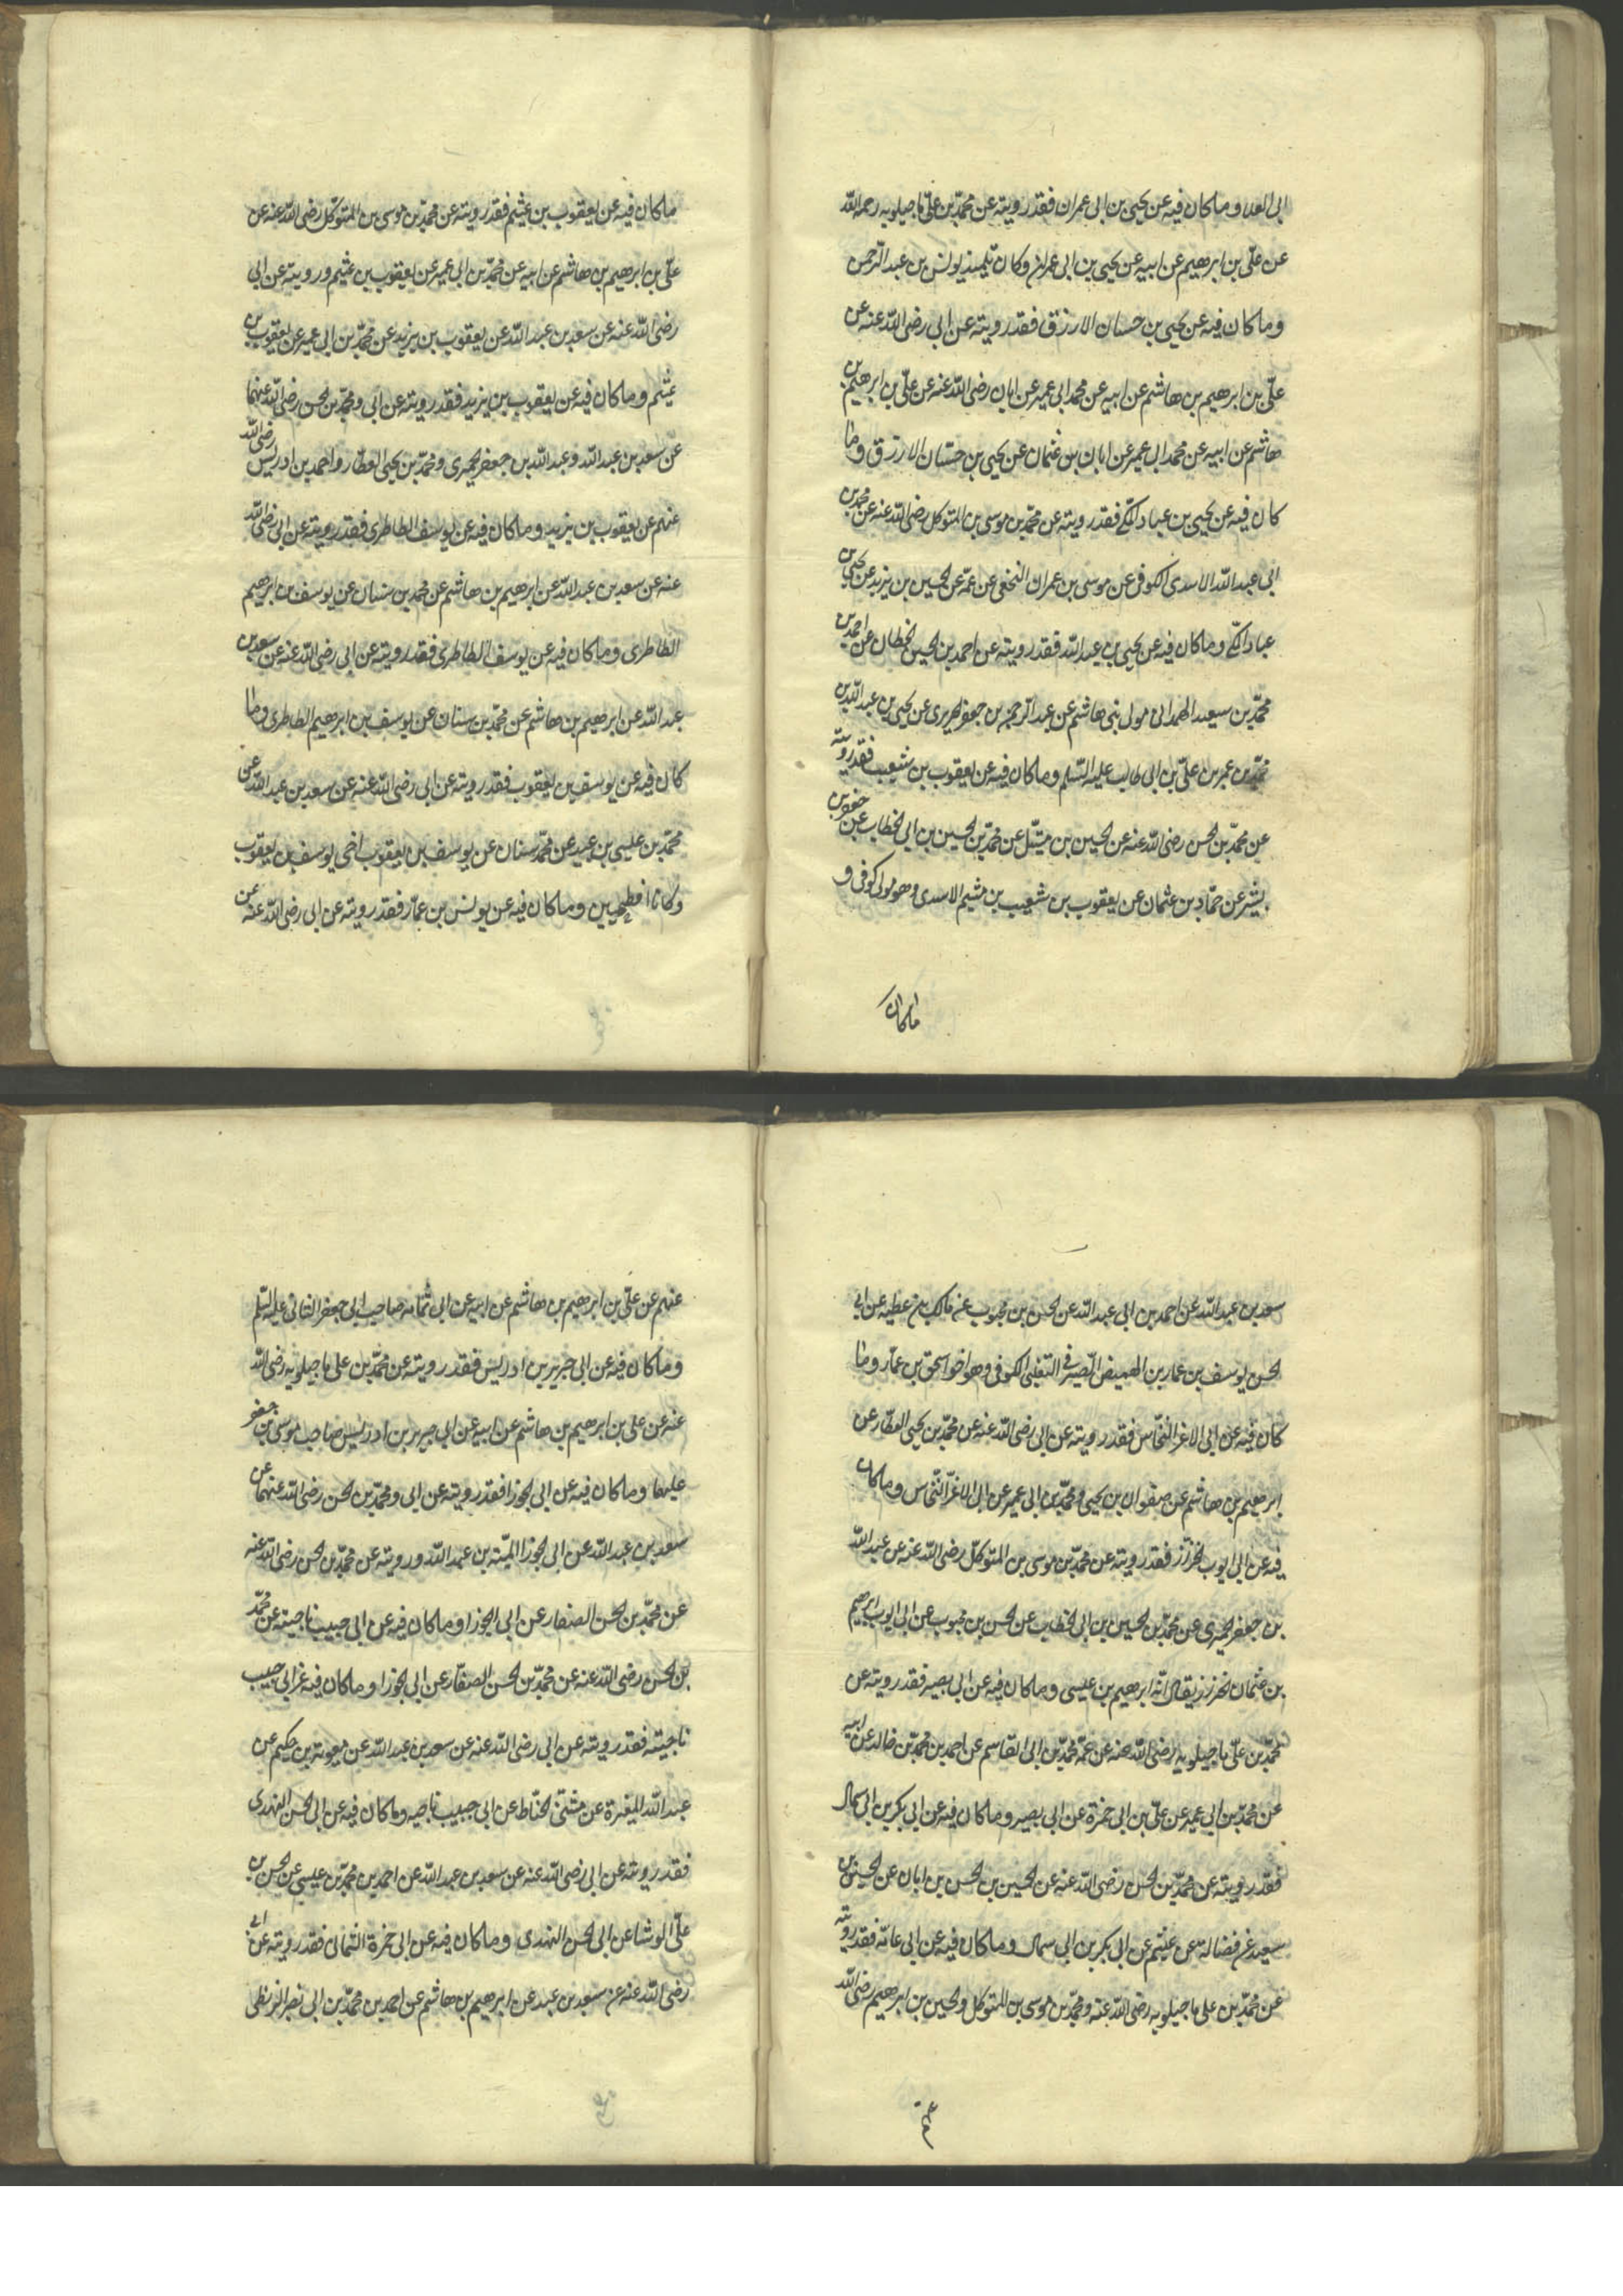 ابى العلا و ما كان فيه عن يحيى بن ابى عمران فقد رويته عن محمّد بن علىّ ماجيلويه رحمه الله
عن علىّ بن ابرهيم عن ابيه عن يحيى بن ابى عمران وكان تلميذ يونس بن عبد الرّحمن
وما كان فيه عن يحيى بن حسان الازرق فقد رويته عن ابى رضى الله عنه عن
علىّ بن ابرهيم بن هاشم عن ابيه عن محمد ابى عمير عن ابان رضى الله عنه عن علىّ بن ابرهيم بن
هاشم عن ابيه عن محمد ابى عمير عن ابان بن عثمان عن يحيى بن حسّان الازرق وما
كان فيه عن يحيى بن عباد المكّى فقد رويته عن محمّد بن موسى بن المتوكل رضى الله عنه عن محمد بن
ابى عبد الله الاسدى الكوفى عن موسى بن عمران النخعى عن عمّه عن الحسين بن يزيد عن يحيى بن
عباد المكّى وما كان فيه عن يحيى بن عبد الله فقد رويته عن احمد بن الحسين القطان عن احمد بن
محمّد بن سعيد الهمدانى مولى بنى هاشم عن عبد الرحمن بن جعفر الحريرى عن يحيى بن عبد الله بن
محمّد بن عمر بن علىّ بن ابى طالب عليه السّلم وما كان فيه عن يعقوب بن شعيب فقد رويته
عن محمّد بن الحسن رضى الله عنه عن الحسين بن متيّل عن محمّد بن الحسين بن ابى الخطاب عن جعفر بن
بشير عن حمّاد بن عثمان عن يعقوب بن شعيب بن ميثم الاسدى وهو مولى كوفى و
ماكان
ما كان فيه عن يعقوب بن عيثم فقد رويته عن محمّد بن موسى بن المتوكّل رضى الله عنه عن
علىّ بن ابرهيم بن هاشم عن ابيه عن محمّد بن ابى عمير عن يعقوب بن عثيم ورويته عن ابى
رضى الله عنه عن سعد بن عبد الله عن يعقوب بن يزيد عن محمّد بن ابى عمير عن يعقوب بن
عيثم وما كان فيه عن يعقوب بن يزيد فقد رويته عن ابى ومحمّد بن الحسن رضى الله عنهما
عن سعد بن عبد الله وعبد الله بن جعفر الحميرى ومحمّد بن يحيى العطّار واحمد بن ادريس رضى الله
عنهم عن يعقوب بن يزيد وما كان فيه عن يوسف الطاطرى فقد رويته عن ابى رضى الله
عنه عن سعد بن عبد الله عن ابرهيم بن هاشم عن محمد بن سنان عن يوسف بن ابرهيم
الطاطرى وما كان فيه عن يوسف الطاطرى فقد رويته عن ابى رضى الله عنه عن سعد بن
عبد الله عن ابرهيم بن هاشم عن محمّد بن سنان عن يوسف بن ابرهيم الطاطرى وما
كان فيه عن يوسف بن يعقوب فقد رويته عن ابى رضى الله عنه عن سعد بن عبد الله عن
محمّد بن عيسى بن عبيد عن محمّد سنان عن يوسف بن يعقوب اخى يوسف بن يعقوب
وكانا فطحيين وما كان فيه عن يونس بن عمّار فقد رويته عن ابى رضى الله عنه عن
سعد بن عبد الله عن احمد بن ابى عبد الله عن الحسن بن محبوب عن مالك بن عطيه عن ابى
الحسن يوسف بن عمار بن الفيض الصيرفى التغلبى الكوفى وهو اخو اسحق بن عمّار وما
كان فيه عن ابى الاغر النخّاس فقد رويته عن ابى رضى الله عنه عن محمّد بن يحيى العطّار عن
ابرهيم بن هاشم عن صفوان بن يحيى ومحمّد بن ابى عمير عن ابى الاغرّ النّخاس وما كان
فيه عن ابى ايوب الخزّاز فقد رويته عن محمّد بن موسى بن المتوكّل رضى الله عنه عن عبد الله
بن جعفر الحميرى عن محمّد بن الحسين بن ابى الخطاب عن الحسن بن محبوب عن ابى ايوب ابرهيم
بن عثمان الخزاز يقال انّه ابرهيم بن عيسى وما كان فيه عن ابى بصير فقد رويته عن
محمّد بن علىّ ماجيلويه رضى الله عنه عن عمّه محمّد بن ابى القاسم عن احمد بن محمّد بن خالد عن ابيه
عن محمّد بن ابى عمير عن علىّ بن ابى حمزة عن ابى بصير وما كان فيه عن ابى بكر بن ابى سمال
فقد رويته عن محمّد بن الحسن رضى الله عنه عن الحسين بن الحسن بن ابان عن الحسين بن
سعيد عن فضالة عن عيثم عن ابى بكر بن ابى سمال وما كان فيه عن ابى ثمامة فقد رويته
عن محمّد بن على ماجيلويه رضى الله عنه ومحمّد بن موسى بن المتوكل والحسين بن ابرهيم رضى الله
عنهم
عنهم عن علىّ بن ابرهيم بن هاشم عن ابيه عن ابى ثمامه صاحب ابى جعفر الثانى عليه السّلم
وما كان فيه عن ابى جرير بن ادريس فقد رويته عن محمّد بن على ماجيلويه رضى الله
عنه عن على بن ابرهيم بن هاشم عن ابيه عن ابى جرير بن ادريس صاحب موسى بن جعفر
عليهما وما كان فيه عن ابى الجوزا فقد رويته عن ابى ومحمّد بن الحسن رضى الله عنهما عن
سعد بن عبد الله عن ابى الجوزا المنبّه بن عبد الله ورويته عن محمّد بن الحسن رضى الله عنه
عن محمّد بن الحسن الصفار عن ابى الجوزا وما كان فيه عن ابى حبيب ناجيته عن محمّد
بن الحسن رضى الله عنه عن محمّد بن الحسن الصفّار عن ابى الجوزا وما كان فيه عن ابى حبيب
ناجيته فقد رويته عن ابى رضى الله عنه عن سعد بن عبد الله عن معوية بن حكيم عن
عبد الله المغيرة عن مثنّى الحنّاط عن ابى حبيب ناجيه وما كان فيه عن ابى الحسن النهدى
فقد رويته عن ابى رضى الله عنه عن سعد بن عبد الله عن احمد بن محمّد بن عيسى عن الحسن بن
علىّ الوشا عن ابى الحسن النهدى وما كان فيه عن ابى حمزة الثمالى فقد رويته عن ابى
رضى الله عنه عن سعد بن عبد عن ابرهيم بن هاشم عن احمد بن محمّد بن ابى نصر البزنطى